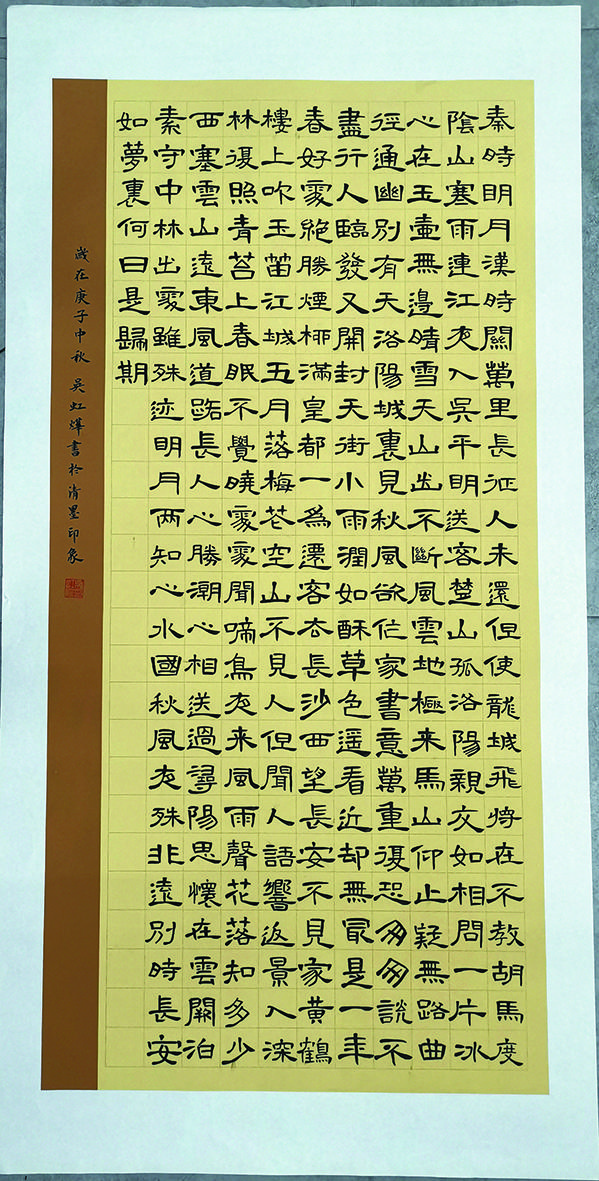 秦時明月漢時關萬里長征人未還但使龍城飛將在不教胡馬度
陰山塞雨連江夜入吳平明送客楚山孤洛陽親友如相問一片冰
心在玉壺無邊晴雪天山出不斷風雲地極來馬山仰止疑無路曲
徑通幽別有天洛陽城裏見秋風欲作家書意萬重復恐匆匆說不
盡行人臨發又開封天街小雨潤如酥草色遙看近却無最是一年
春好處絕勝煙柳滿皇都一爲遷客去長沙西望長安不見家黃鶴
樓上吹玉笛江城五月落梅花空山不見人但聞人語響返景入深
林復照青苔上春眠不覺曉處處聞啼鳥夜來風雨聲花落知多少
西塞雲山遠東風道路長人心勝潮心相送過潯陽思懷在雲闕泊
素守中林出處雖殊迹明月兩知心水國秋風夜殊非遠別時長安
如夢裏何日是歸期
歲在庚子中秋 吳虹燁書於清墨印象